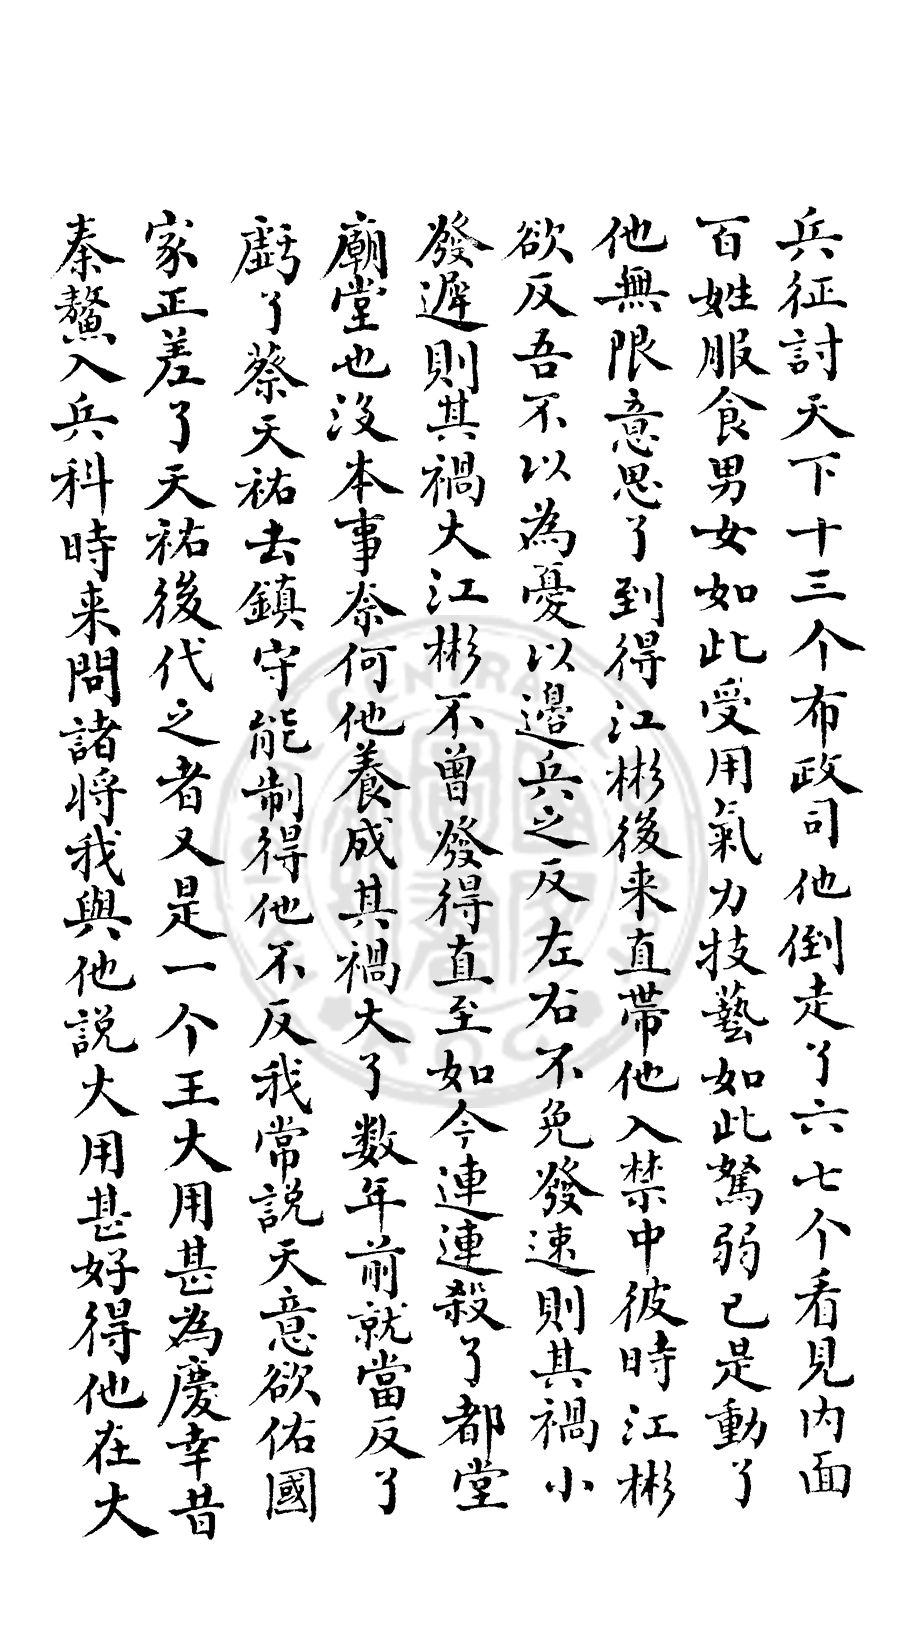 兵征討天下十三个布政司他倒走了六七个看見内面
百姓服食男女如此受用氣力技藝如此駑弱已是動了
他無限意思了到得江彬後来直帶他入禁中彼時江彬
欲反吾不以為憂以邊兵之反左右不免發速則其禍小
發遲則其禍大江彬不曾發得直至如今連連殺了都堂
廟堂也没本事奈何他養成其禍大了数年前就當反了
虧了蔡天祐去鎮守能制得他不反我常説天意欲佑國
家正差了天祐後代之者又是一个王大用甚為慶幸昔
秦鰲入兵科時来問諸將我與他説大用甚好得他在大
CENTRAL
ROC